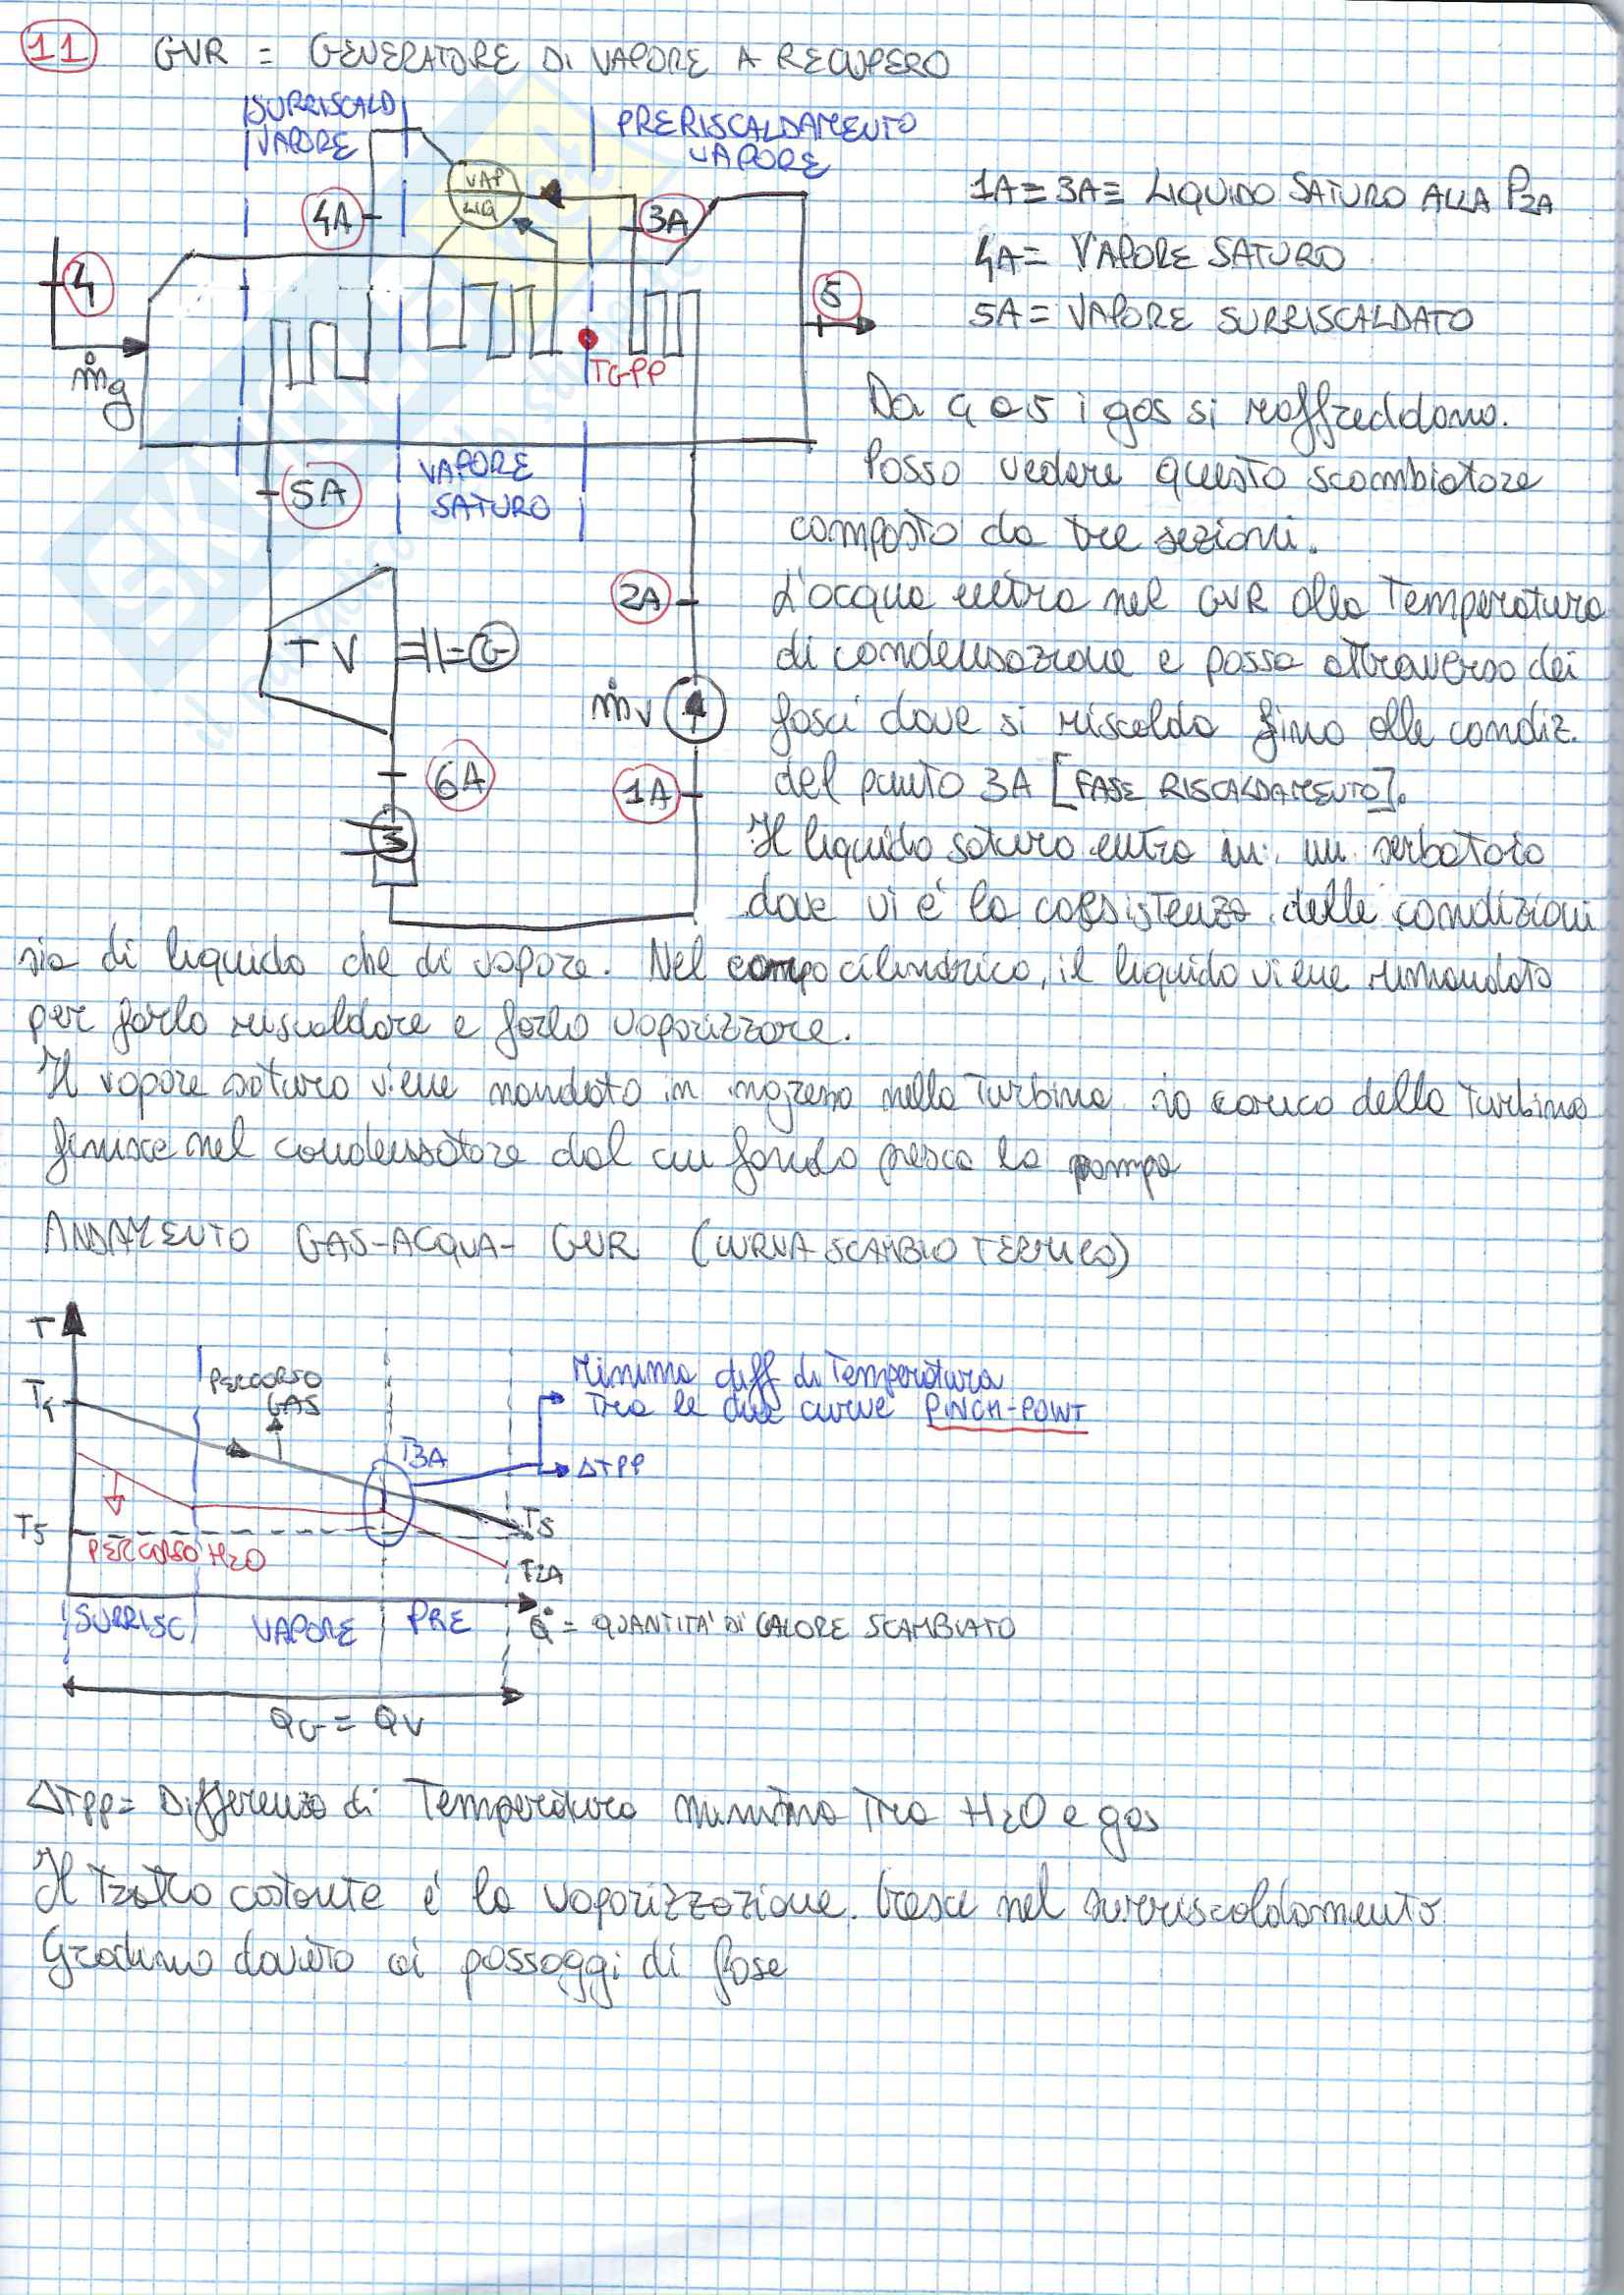 11 GVR = GENERATORE DI VAPORE A RECUPERO
SURRISCALD
VAPORE
PRERISCALDAMENTO
VAPORE
VAP
LIQ
4A
3A
4
5
ṁg
TGPP
5A
VAPORE
SATURO
2A
TV
G
ṁv
6A
1A
1A≡3A≡ LIQUIDO SATURO ALLA P2A
4A= VAPORE SATURO
5A= VAPORE SURRISCALDATO
Da 4 a 5 i gas si raffreddano.
Posso vedere questo scambiatore
composto da tre sezioni.
L'acqua entra nel GVR alla Temperatura
di condensazione e passa attraverso dei
fasci dove si riscalda fino alle condiz.
del punto 3A [FASE RISCALDAMENTO].
Il liquido saturo entra in un serbatoio
dove vi è la coesistenza delle condizioni
sia di liquido che di vapore. Nel corpo cilindrico, il liquido viene rimandato
per farlo riscaldare e farlo vaporizzare.
Il vapore saturo viene mandato in ingresso nella Turbina. lo scarico della Turbina
finisce nel condensatore dal cui fondo pesca la pompa
ANDAMENTO GAS-ACQUA- GVR (CURVA SCAMBIO TERMICO)
T
T4
PERCORSO
GAS
Minima diff di Temperatura
Tra le due curve PINCH-POINT
T3A
ΔTPP
T5
T5
PERCORSO H2O
T2A
SURRISC
VAPORE
PRE
Q̇ = QUANTITA' DI CALORE SCAMBIATO
QG = QV
ΔTPP= Differenza di Temperatura minima Tra H2O e gas
Il Tratto costante é la vaporizzazione. Cresce nel surriscaldamento
Gradino dovuto ai passaggi di fase